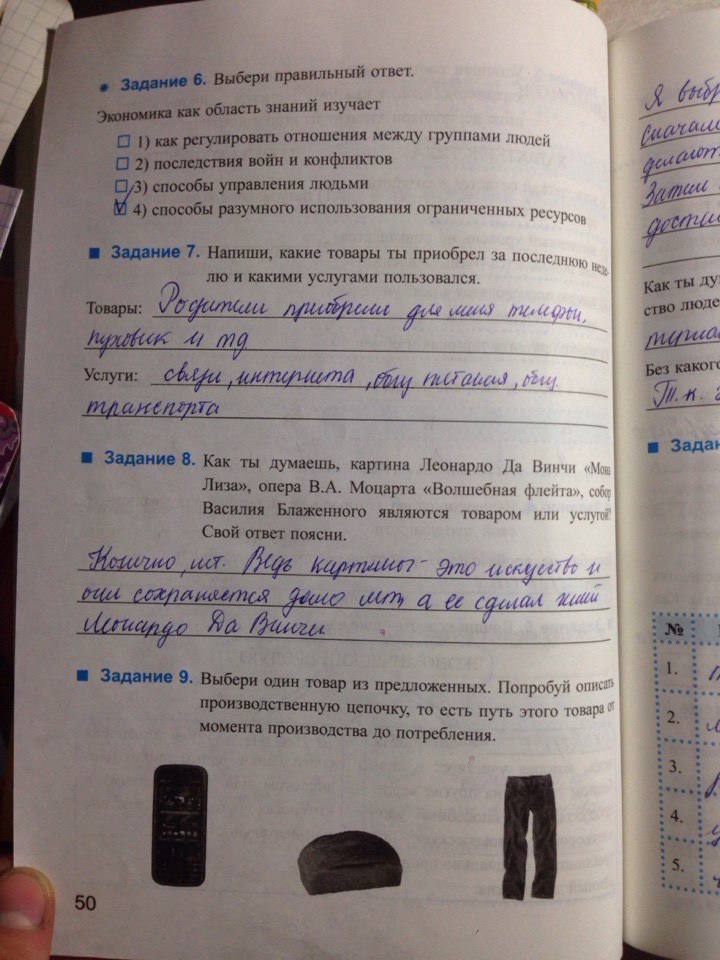 Задание 6. Выбери правильный ответ.
Экономика как область знаний изучает
1) как регулировать отношения между группами людей
2) последствия войн и конфликтов
3) способы управления людьми
4) способы разумного использования ограниченных ресурсов
Задание 7. Напиши, какие товары ты приобрел за последнюю неде-
лю и какими услугами пользовался.
Товары: Родители приобрели для меня телефон,
пуховик и тд
Услуги: связи, интернета, общ питания, общ.
транспорта
Задание 8. Как ты думаешь, картина Леонардо Да Винчи «Мона
Лиза», опера В.А. Моцарта «Волшебная флейта», собор
Василия Блаженного являются товаром или услугой?
Свой ответ поясни.
Конечно, нет. Ведь картины - это искуство и
они сохраняется
лет, а ее сделал
Леонардо Да Винчи
Задание 9. Выбери один товар из предложенных. Попробуй описать
производственную цепочку, то есть путь этого товара от
момента производства до потребления.
50
Я выбр
сначал
делают
Затем
дости
Как ты ду
ство люде
Без какого
Т.к.
Задан
№
1.
2.
3.
4.
5.